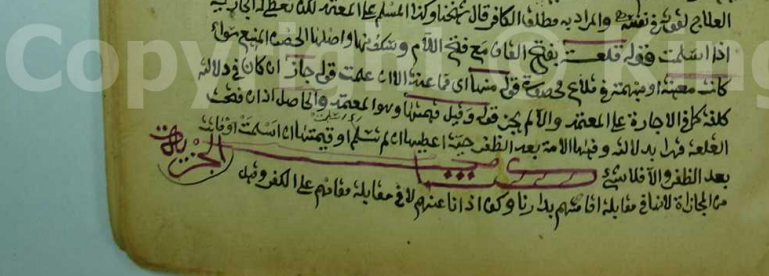 العلاج لقوة نفعه والمراد به مطلق الكافر قال شيخنا وكذا المسلم على المعتمد لكن يعطى له الجارية
اذا اسلمت قوله قلعة بفتح القاف مع فتح اللام وسكونها واصلها الحصن المنيع سواء
كانت معينة او مبهمة في قلاع محصورة قوله منها اي مما عينه الا ان علمت قوله جاز ان كان في دلالته
كلفة كل في الاجارة على المعتمد والا لم يجز قوله وقيل قيمتها وهو المعتمد والحاصل اذا ان فتحت
القلعة بدلالته وفيها الامة بعد الظفر حية اعطيها ان لم تسلم او قيمتها ان اسلمت او ماتت
بعد الظفر والا فلا شيء الجزية
من المجازاة لانها في مقابلة اقامتهم بدارنا وكف اذانا عنهم لا في مقابلة مقامهم على الكفر وقيل
Copyright © King